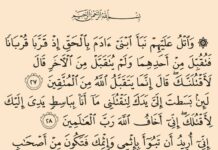 بِسْمِ ٱللَّهِ ٱلرَّحْمَٰنِ ٱلرَّحِيمِ
۞ وَٱتْلُ عَلَيْهِمْ نَبَأَ ٱبْنَىْ ءَادَمَ بِٱلْحَقِّ إِذْ قَرَّبَا قُرْبَانًا
فَتُقُبِّلَ مِنْ أَحَدِهِمَا وَلَمْ يُتَقَبَّلْ مِنَ ٱلْـَٔاخَرِ قَالَ
لَأَقْتُلَنَّكَ ۖ قَالَ إِنَّمَا يَتَقَبَّلُ ٱللَّهُ مِنَ ٱلْمُتَّقِينَ ٢٧
لَئِنۢ بَسَطتَ إِلَىَّ يَدَكَ لِتَقْتُلَنِى مَآ أَنَا۠ بِبَاسِطٍ يَدِىَ إِلَيْكَ
لِأَقْتُلَكَ ۖ إِنِّىٓ أَخَافُ ٱللَّهَ رَبَّ ٱلْعَٰلَمِينَ ٢٨
إِنِّىٓ أُرِيدُ أَن تَبُوٓأَ بِإِثْمِى وَإِثْمِكَ فَتَكُونَ مِنْ أَصْحَٰبِ